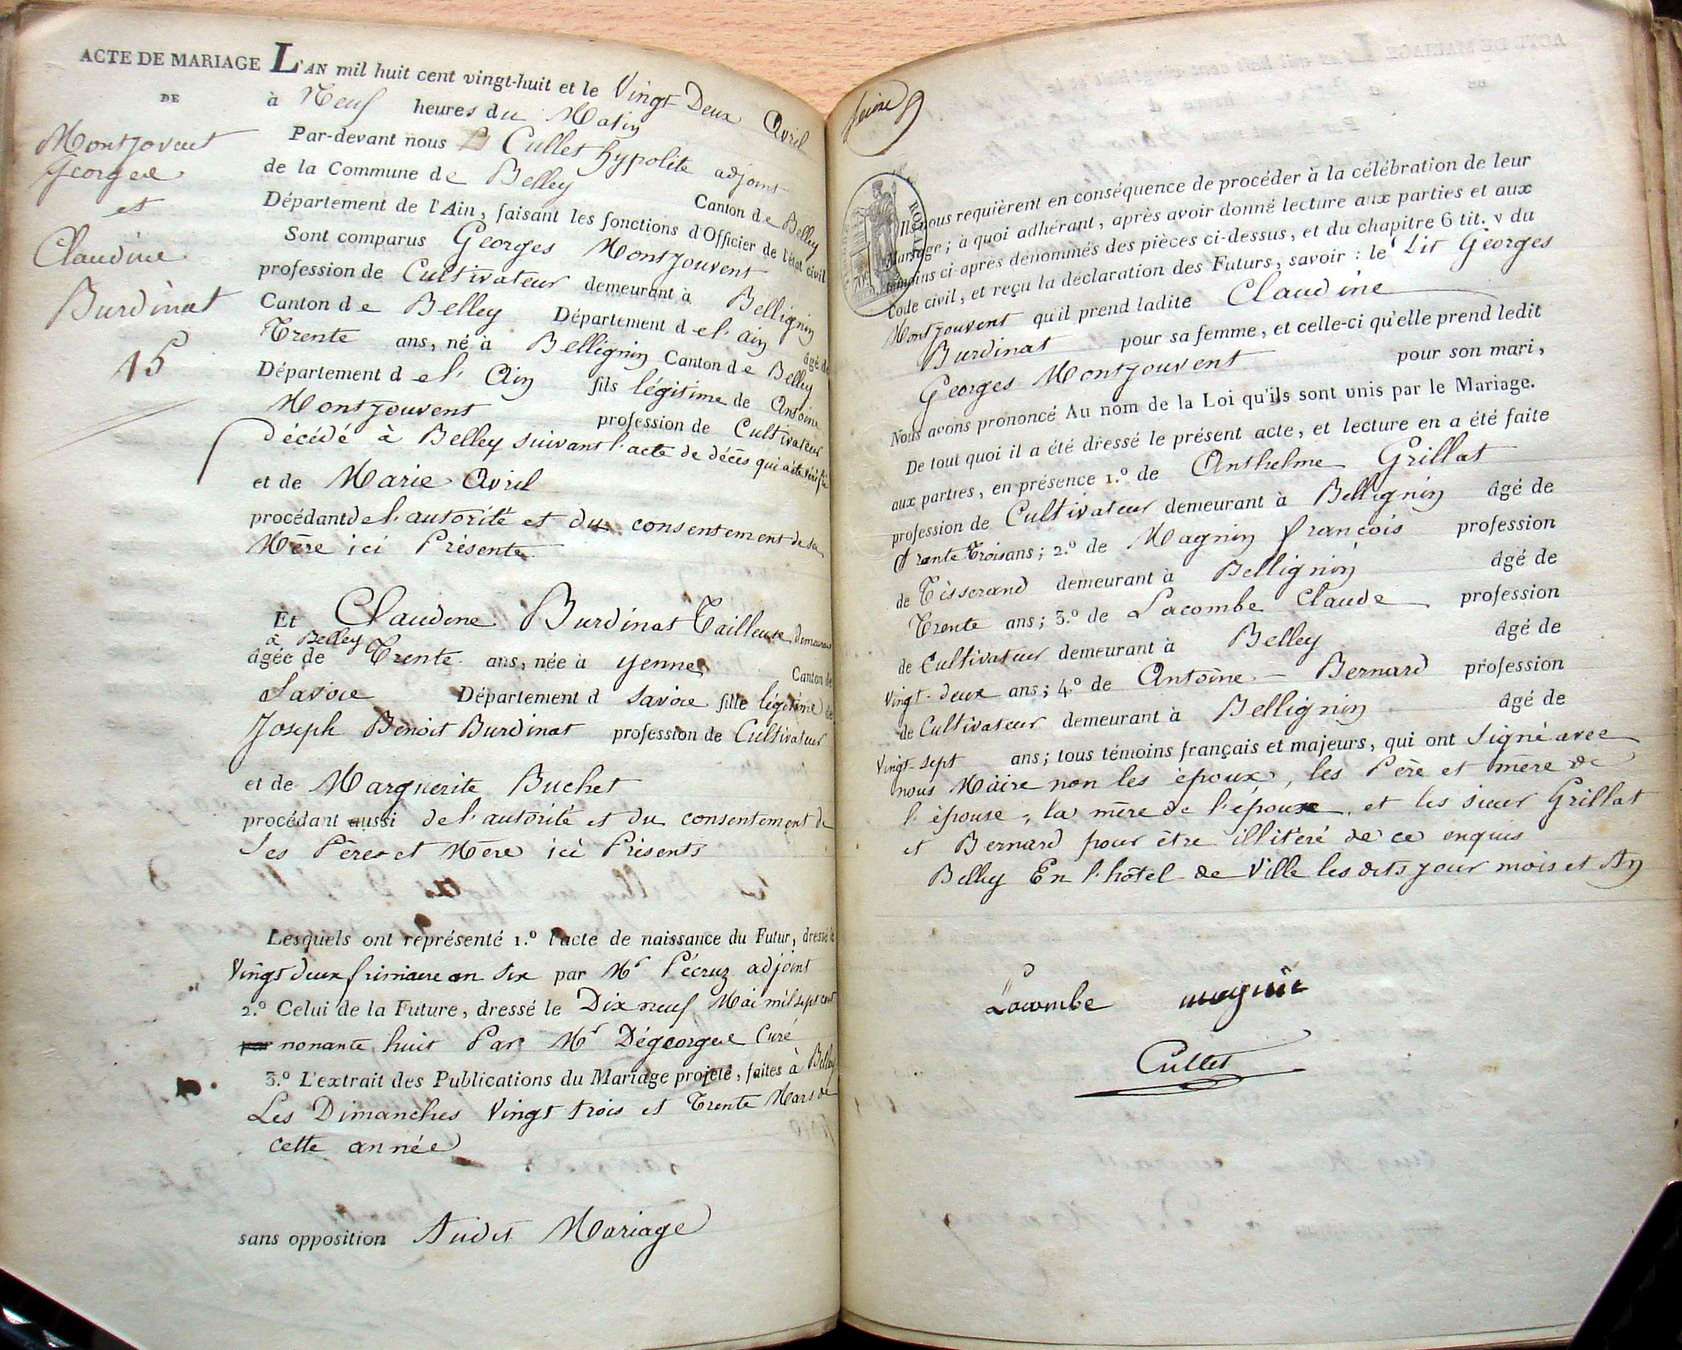 ACTE DE MARIAGE
DE
Montjovent
Georges
et
Claudine
Burdinat
15
L'AN mil huit cent vingt-huit et le Vingt Deux Avril
à Neuf heures du Matin
Par-devant nous Cullet hypolite adjoint
de la Commune de Belley Canton de Belley
Département de l'Ain, faisant les fonctions d'Officier de l'état civil
Sont comparus Georges Montjouvent
profession de Cultivateur demeurant à Bellignin
Canton de Belley Département de l'ain âgé de
Trente ans, né à Bellignin Canton de Belley
Département de l'Ain fils légitime de Antoine
Montjouvent profession de Cultivateur
décédé à Belley suivant l'acte de décès qui a été
et de Marie Avril
procédant de l'autorité et du consentement de sa
Mère ici Présente
Et Claudine Burdinat Tailleuse demeurant
à Belley
âgée de Trente ans, née à yenne Canton de
Savoie Département d savoie fille légitime de
Joseph Benoit Burdinat profession de Cultivateur
et de Marguerite Buchet
procédant aussi de l'autorité et du consentement de
Ses Pères et Mère ici Présents
Lesquels ont représenté 1.º l'acte de naissance du Futur, dressé le
Vingt deux frimaire an Six par Mr Pécruz adjoint
2.º Celui de la Future, dressé le Dix neuf Mai mil sept cent
nonante huit Par Mr Dégeorge Curé
3.º L'extrait des Publications du Mariage projeté, faites à Belley
Les Dimanches Vingt trois et Trente Mars de
cette année
sans opposition Audit Mariage
Ils nous requièrent en conséquence de procéder à la célébration de leur
Mariage; à quoi adhérant, après avoir donné lecture aux parties et aux
témoins ci-après dénommés des pièces ci-dessus, et du chapitre 6 tit. v du
Code civil, et reçu la déclaration des Futurs, savoir: le dit Georges
Montjouvent qu'il prend ladite Claudine
Burdinat pour sa femme, et celle-ci qu'elle prend ledit
Georges Montjouvent pour son mari,
Nous avons prononcé Au nom de la Loi qu'ils sont unis par le Mariage.
De tout quoi il a été dressé le présent acte, et lecture en a été faite
aux parties, en présence 1.º de Anthelme Grillat
profession de Cultivateur demeurant à Bellignin âgé de
trente Trois ans; 2.º de Magnin françois profession
de Tisserand demeurant à Bellignin âgé de
Trente ans; 3.º de Lacombe Claude profession
de Cultivateur demeurant à Belley âgé de
Vingt-deux ans; 4.º de Antoine Bernard profession
de Cultivateur demeurant à Bellignin âgé de
Vingt-sept ans; tous témoins français et majeurs, qui ont Signé avec
nous Maire non les époux, les Père et mere de
l'épouse, la mère de l'époux et les sieur Grillat
et Bernard pour être illitéré de ce enquis
Belley En l'hôtel de Ville les dits jour mois et An
Lacombe magnin
Cullet